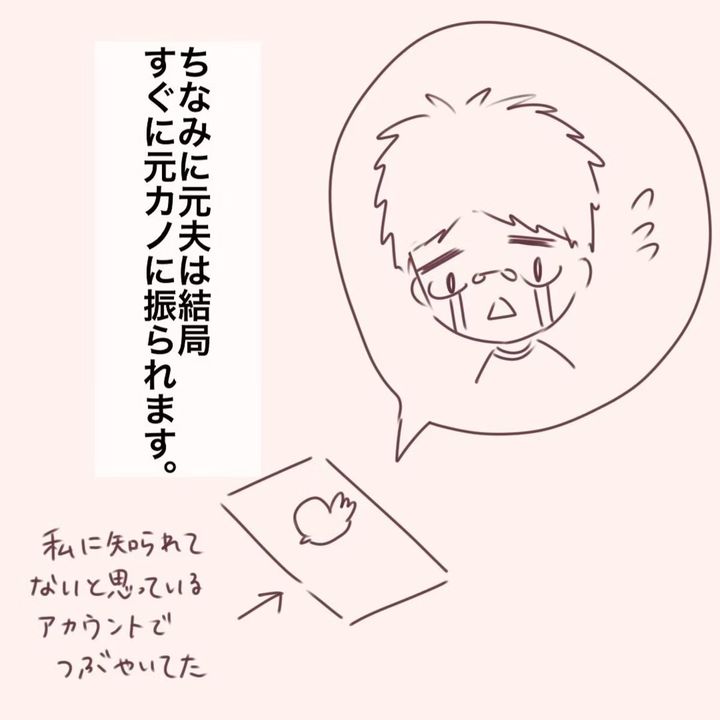 ちなみに元夫は結局
すぐに元カノに振られます。
私に知られて
ないと思っている
アカウントで
つぶやいてた